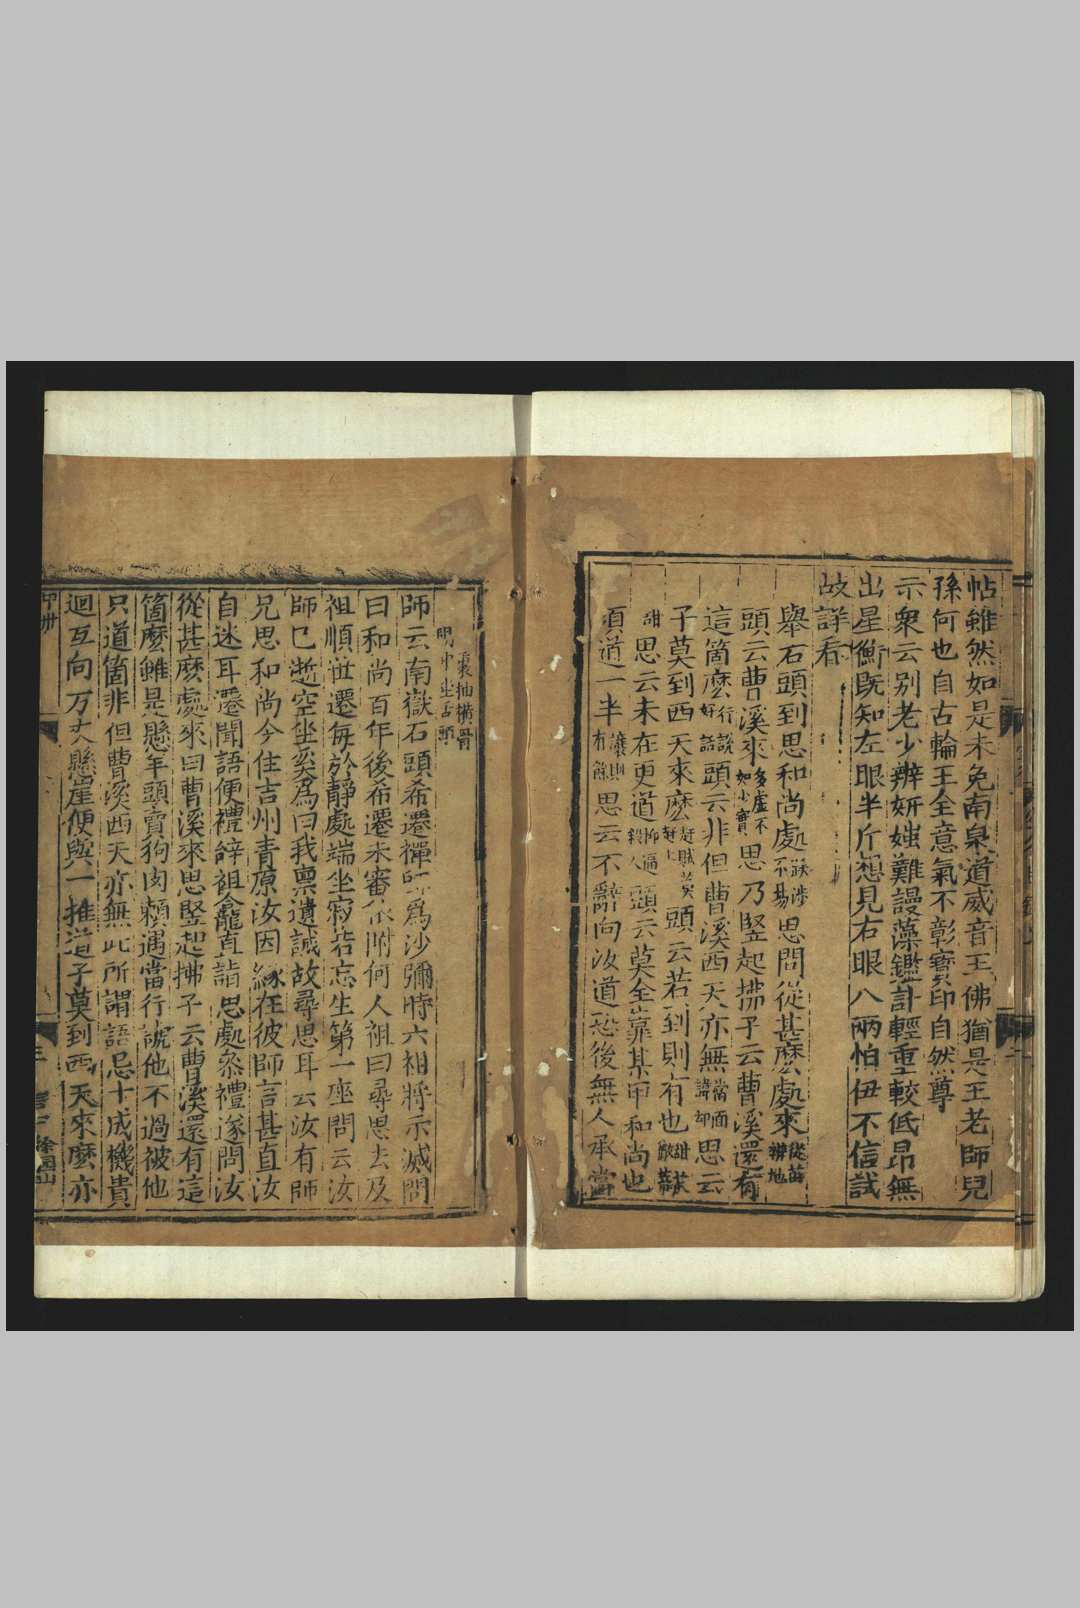 帖雖然如是未免南泉道威音王佛猶是王老師兒
孫何也自古輪王全意氣不彰寶印自然尊
示衆云别老少辨妍媸難謾藻鑑計輕重較低昂無
出星衡既知左眼半斤想見右眼八兩怕伊不信試
故詳看
舉石頭到思和尚處跋涉不易思問從甚麽處來從苗辨地
頭云曹溪來多虛不如少實思乃竪起拂子云曹溪還有
這箇麽行說好話頭云非但曹溪西天亦無當面諱却思云
子莫到西天來麽赶賊莫赶上頭云若到則有也甜苽
甜思云未在更道頭云莫全靠某甲和尚也
須道一半讓則有餘思云不辭向汝道恐後無人承當
裏抽橫骨
明中坐舌頭
師云南嶽石頭希遷禪師爲沙彌時六祖將示滅問
曰和尚百年後希遷未審依附何人祖曰尋思去及
祖順世遷每於靜處端坐寂若忘生第一座問云汝
師已逝空坐奚爲曰我稟遺誡故尋思耳云汝有師
兄思和尚今住吉州青原汝因緣在彼師言甚直汝
自迷耳遷聞語便禮辭祖龕直詣思處叅禮遂問汝
從甚麽處來曰曹溪來思竪起拂子云曹溪還有這
箇麽雖是懸羊頭賣狗肉賴遇當行說他不過被他
只道箇非但曹溪西天亦無此所謂語忌十成機貴
迴互向万丈懸崖便與一推道子莫到西天來麽亦